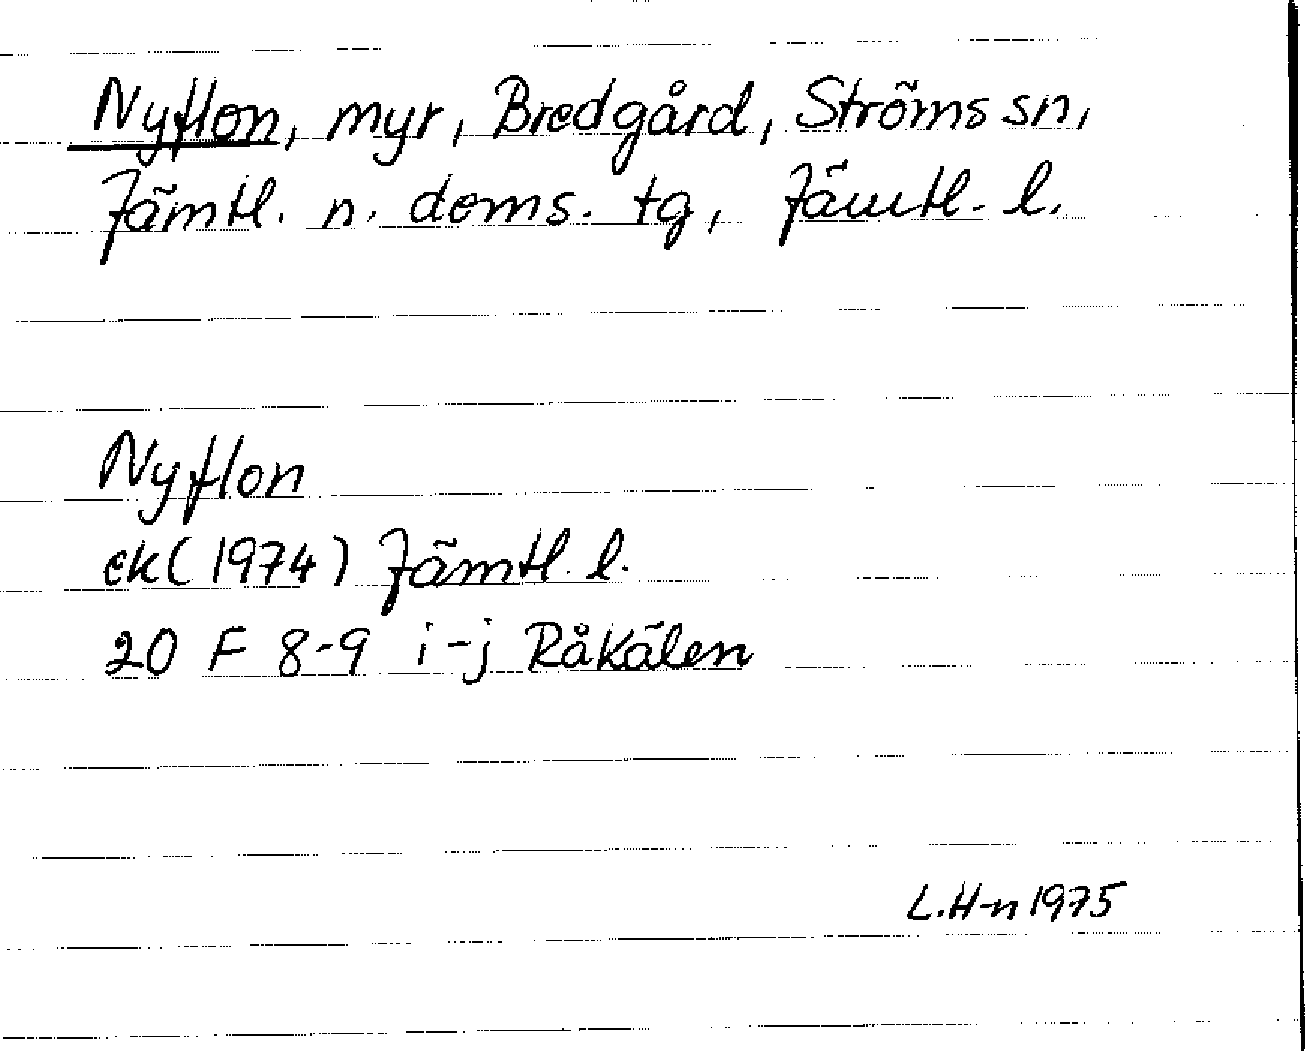 Nyflon, myr, Bredgård, Ströms sn,
Jämtl. n. doms. tg, Jämtl. l.
Nyflon
ek (1974) Jämtl. l.
20 F 8-9 i-j Råkälen
L.H-n 1975